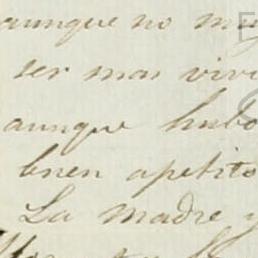 aunque no mu
ser mas vive
aunque hubo
buen apetito
La madre y